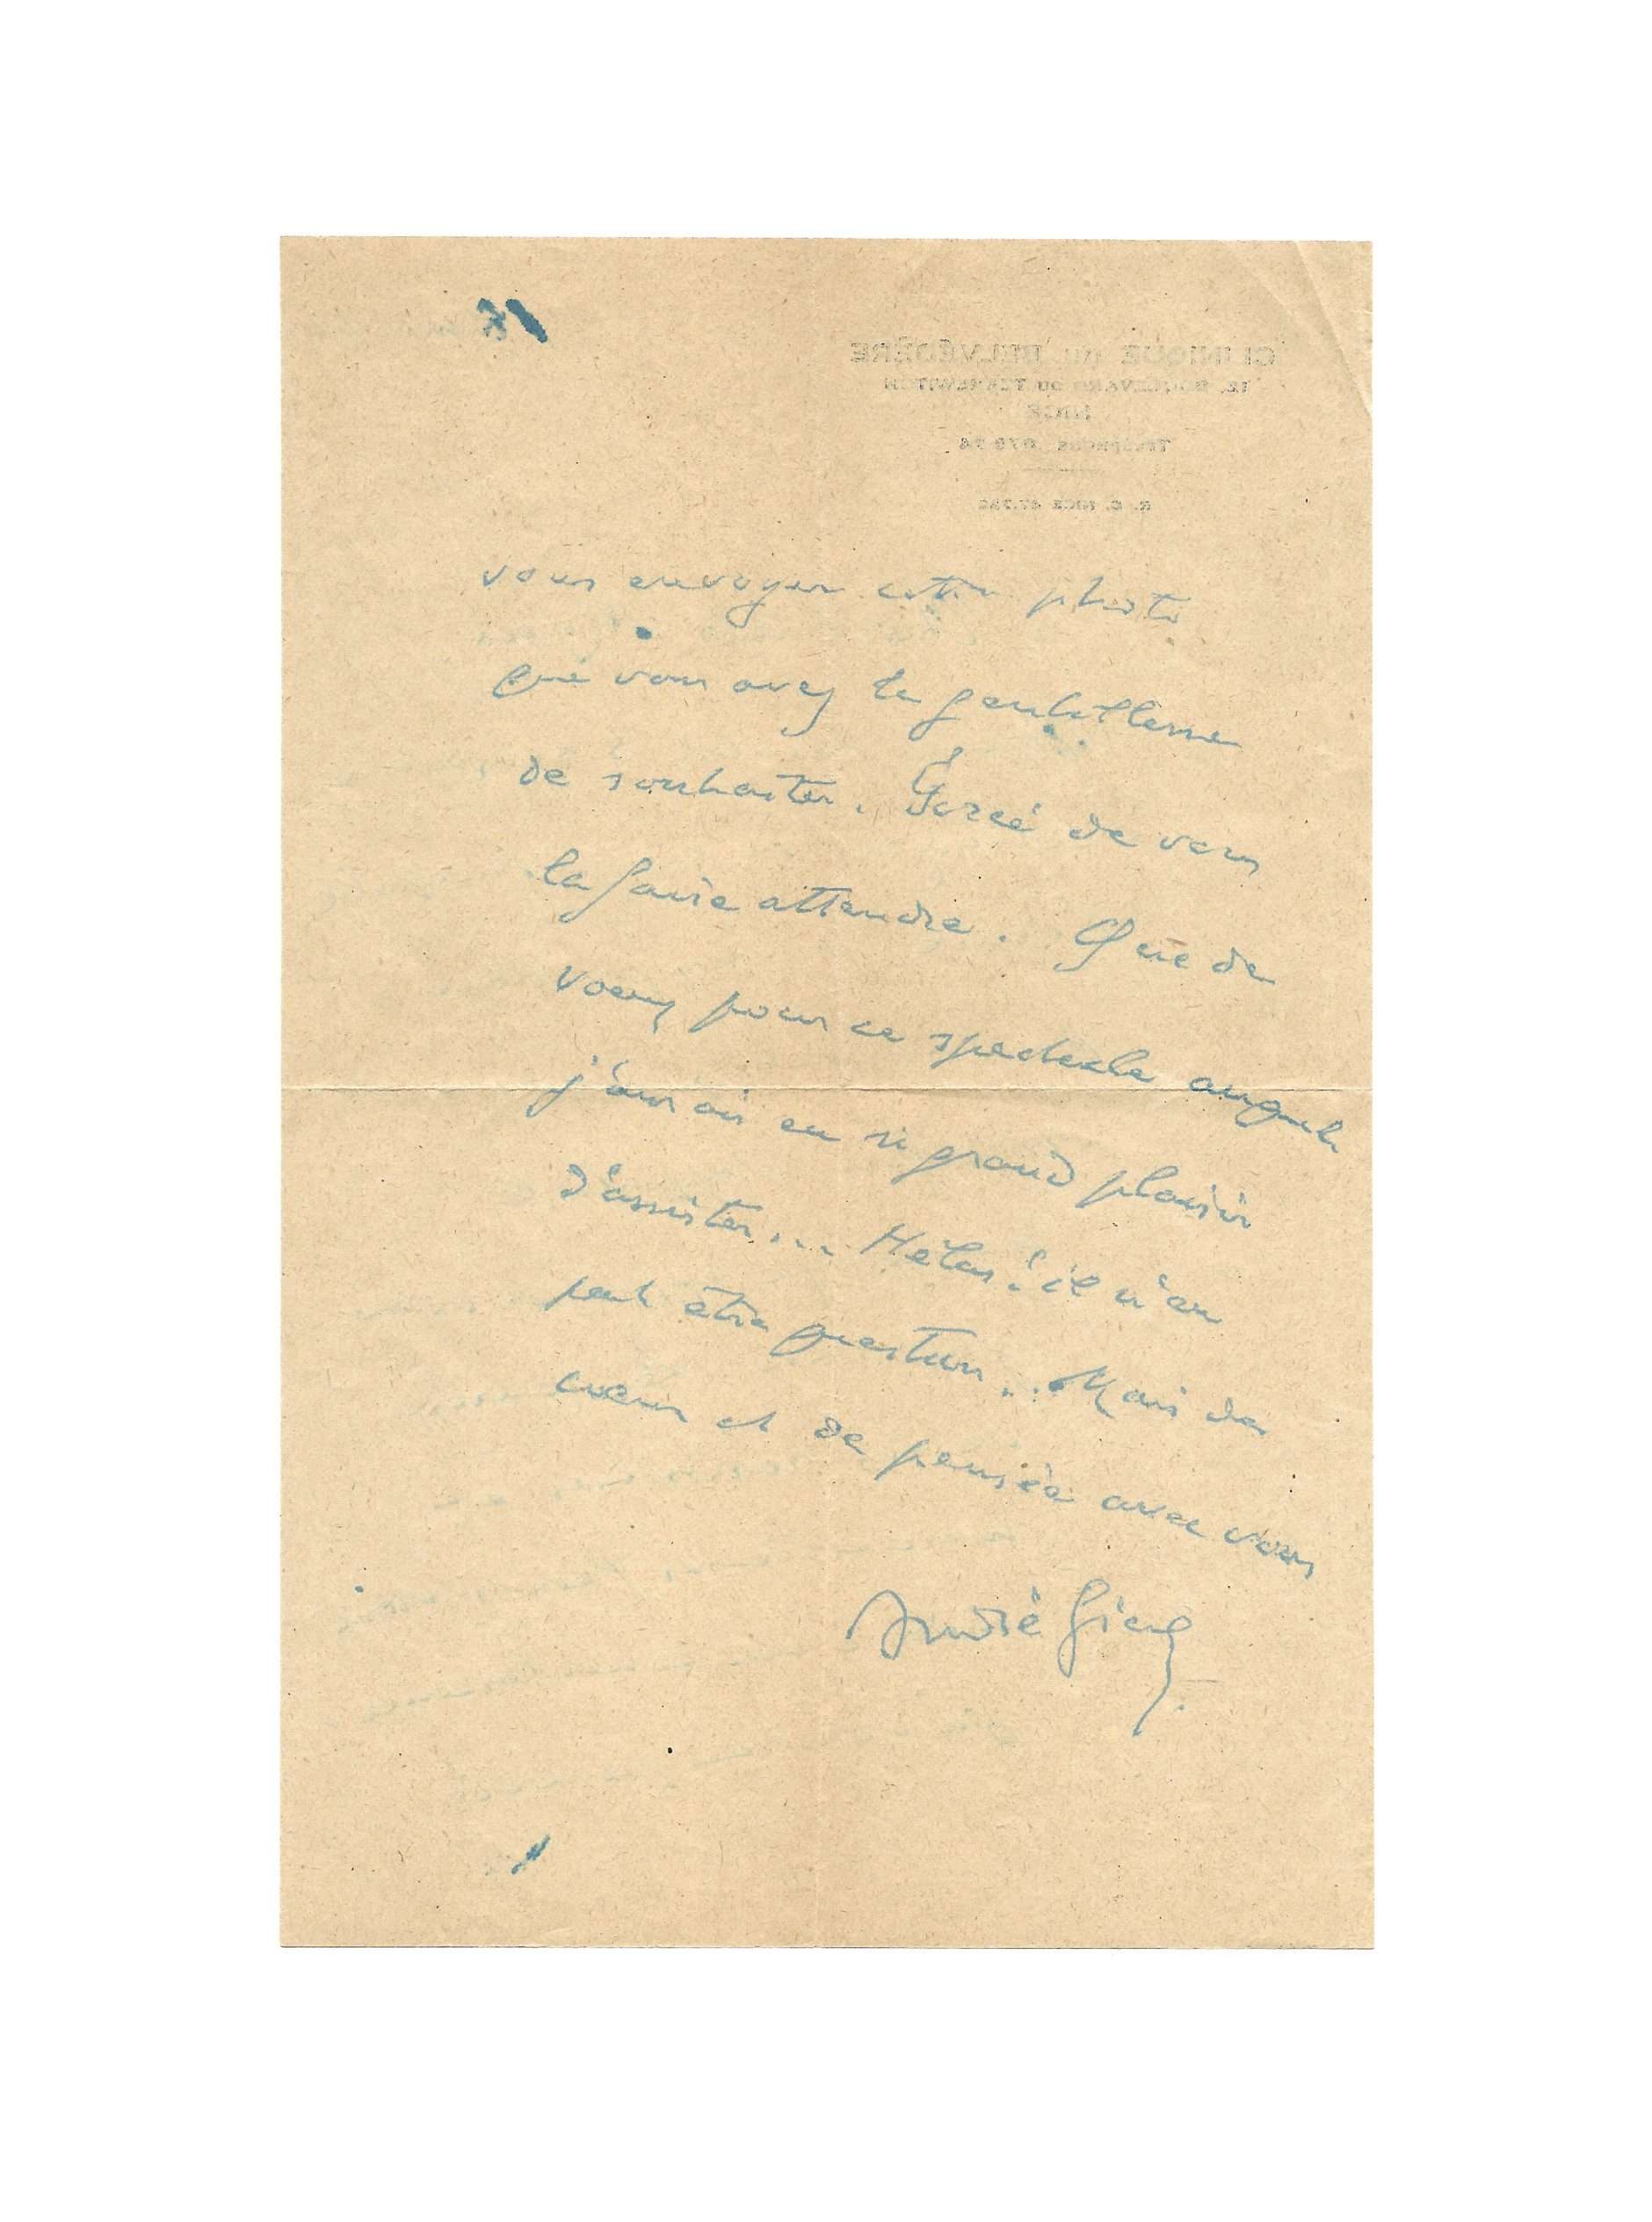 CLINIQUE du BELVÉDÈRE
12, BOULEVARD DU TZAREWITCH
NICE
TÉLÉPHONE
R. C. NICE
vous envoyer cette photo
que vous avez la gentillesse
de souhaiter. Forcé de vous
la faire attendre. Que de
voeux pour ce spectacle auquel
j'aurais eu si grand plaisir
d'assister... Hélas! il n'en
peut être question... Mais de
coeur et de pensée avec vous
André Gide